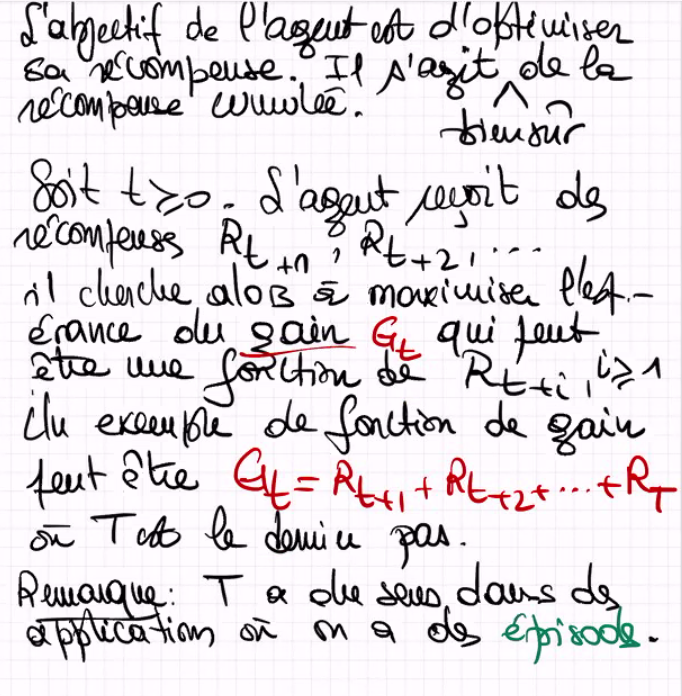 L'objectif de l'agent est d'optimiser
sa récompense. Il s'agit ^ de la
récompense cumulée.
bien sûr
Soit t ≥ 0. L'agent reçoit des
récompenses R_{t+1}, R_{t+2}, ...
il cherche alors à maximiser l'esp-
érance du gain G_t qui peut
être une fonction de R_{t+i}, i ≥ 1
Un exemple de fonction de gain
peut être G_t = R_{t+1} + R_{t+2} + ... + R_T
où T est le dernier pas.
Remarque: T a du sens dans des
application où on a des épisodes.